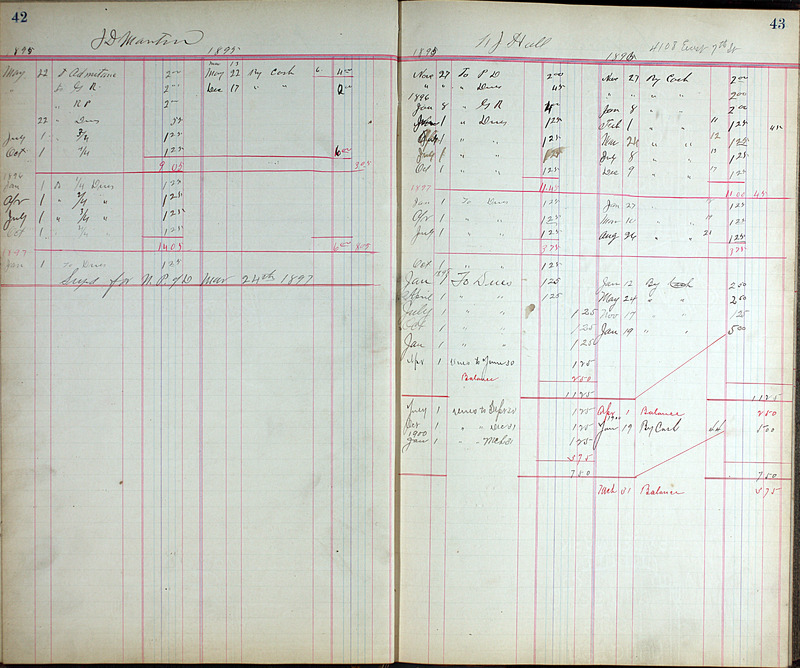 42
J D Martin
1895 1895
May 22 To Admetane 2 00 May 22 By Cash 6 4 00
" To G R 2 00 Dec 17 " " 2 00
" R P 2 00
22 " Dues
July 1 " 3/4 1 25
Oct 1 " 4/4 1 25 6 00
9 05 3 05
1896
Jan 1 To 1/4 Dues 1 25
Apr 1 " 2/4 " 1 25
July 1 " 3/4 " 1 25
Oct 1 " " 1 25
14 05 6 00 8 05
1897
Jan 1 To Dues 1 25
Susp for N. P. of D Mar 24th 1897
43
N J Hall
1895 1896 4108 East 7th St
Nov 27 To P D 2 00 Nov 27 By Cash 2 00
" " " Dues 45 " " " " 2 00
1896
Jan 8 " G R Jan 8 " " 2 00
1 " Dues 1 25 Feb 1 " " 11 1 25 45
1 1 25 Mar 24 " " 12 1 25
July 1 1 25 July 8 " " 1 25
Oct 1 1 25 Dec 9 " " 17 1 25
11 45 11 00 45
1897
Jan 1 To Dues 1 25 Jan 27 " 1 25
Apr 1 " " 1 25 Mar 10 " " 1 25
July 1 " " 1 25 Aug 26 " " 21 1 25
3 75 3 75
Oct 1 " " 1 25
Jan 1 To Dues 1 25 Jan 12 By Cash 2 50
April 1 " " 1 25 May 24 " " 2 50
July 1 " " 1 25 Nov 17 " " 1 25
Oct 1 " " 1 25 Jan 19 " " 5 00
Jan 1 " " 1 25
Apr 1 Dues to June 30 1 25
Balance 2 50
11 25 11 25
July 1 Dues to Sept 30 1 25 Apr 1 Balance 2 50
Oct 1 " " Dec 31 1 25 Jan 19 By Cash 5 00
1900 1900
Jan 1 " " Mch 31 1 25
3 75
7 50 7 50
Mch 31 Balance 3 75